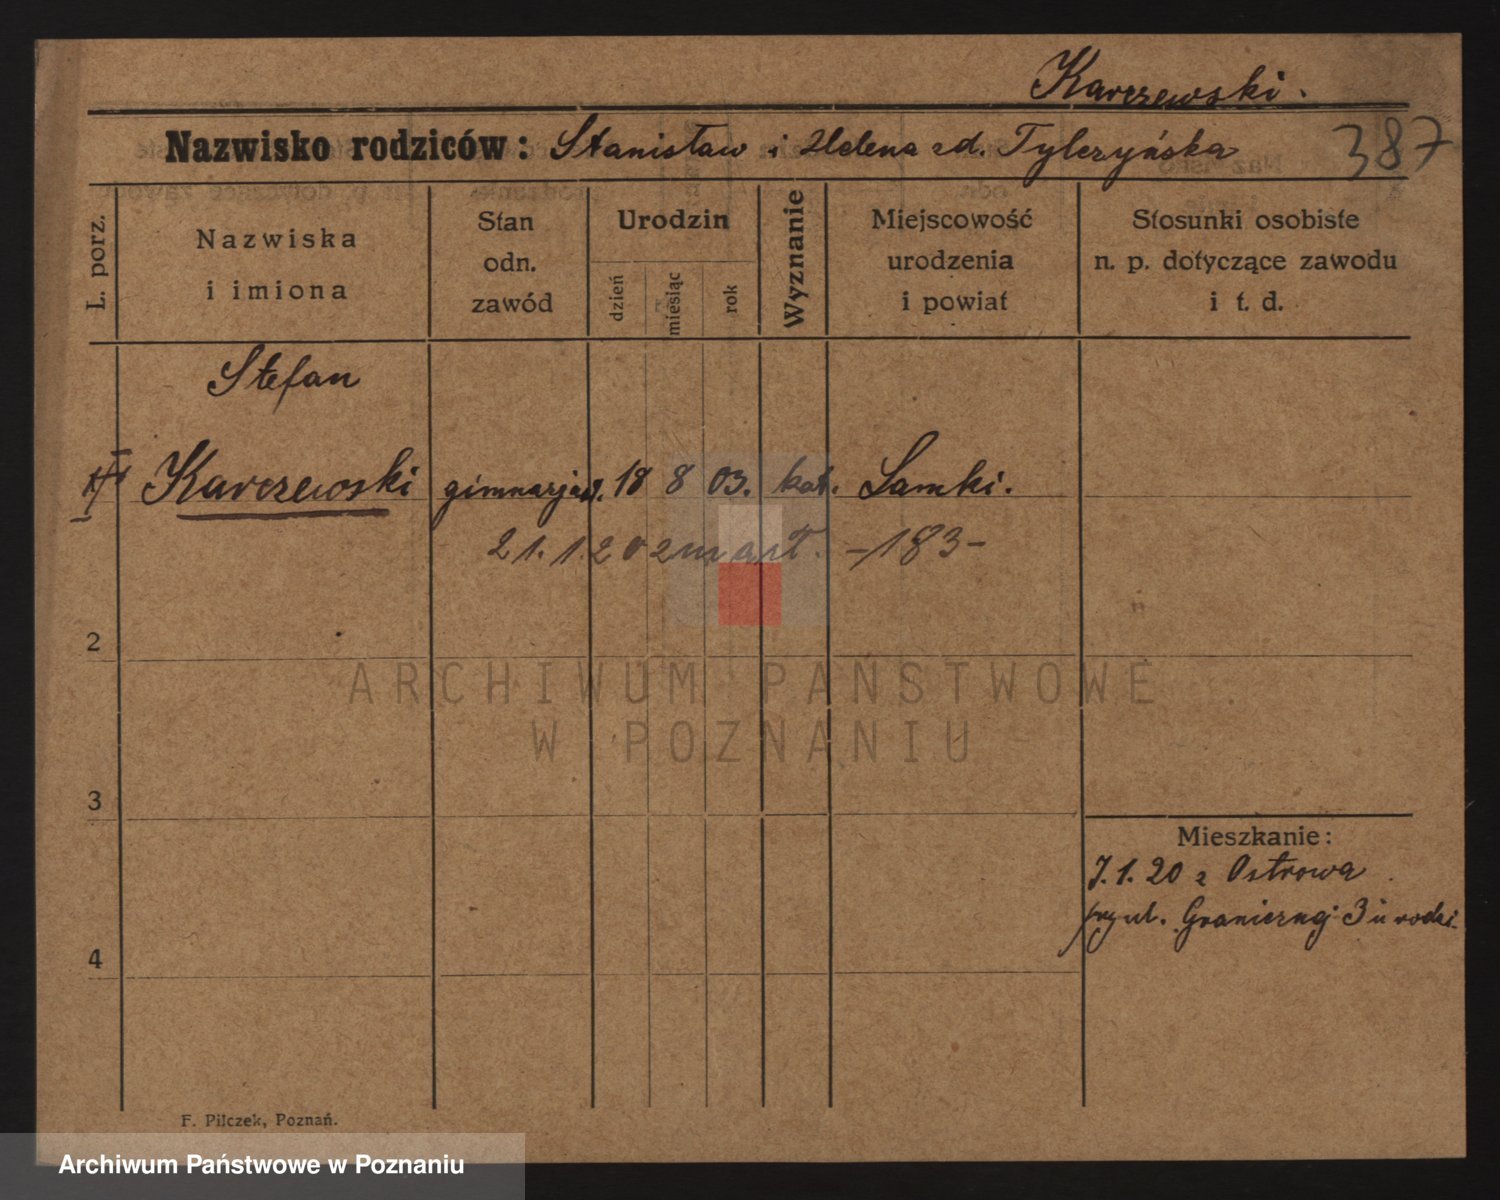 Karczewski.
Nazwisko rodziców: Stanisław i Helena zd. Tylczyńska 387
L. porz.
Nazwiska
i imiona
Stan
odn.
zawód
Urodzin
dzień
miesiąc
rok
Wyznanie
Miejscowość
urodzenia
i powiat
Stosunki osobiste
n. p. dotyczące zawodu
i t. d.
Stefan
Karczewski gimnazjast. 18 8 03. kat. Lamki.
21. 1. 20 zmarł. -183-
2
3
4
Mieszkanie:
7. 1. 20 z Ostrowa
ul. Granicznej 3 u rodzi.
F. Pilczek, Poznań.
ARCHIWUM PAŃSTWOWE
W POZNANIU
Archiwum Państwowe w Poznaniu